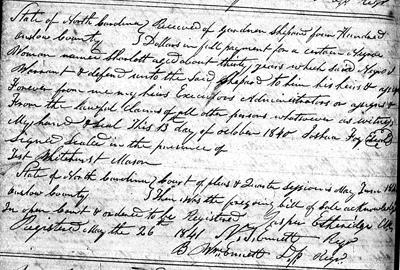 State of North Carolina } Received of Gardner Shepard four Hundred
Onslow County } Dollars in full payment for a certain Negro
Woman named Charlott aged about thirty years which said Negro I
Warrant & defend unto the said Shepard to him his heirs & assigns
Forever from me my heirs Executors Administrators or assigns &
From the lawful Claims of all other persons whatsoever as witness
My hand & seal This 13th day of October 1840 Joshua Foy Seal
Signed Sealed in the presence of
Test Whitehurst Mason
State of North Carolina } Court of pleas & Quarter Sessions May Term 1841
Onslow County } Then was the foregoing bill of Sale acknowledged
In open Court & ordered to be Registered Jasper Etheridge Clk
Registered May the 26th 1841